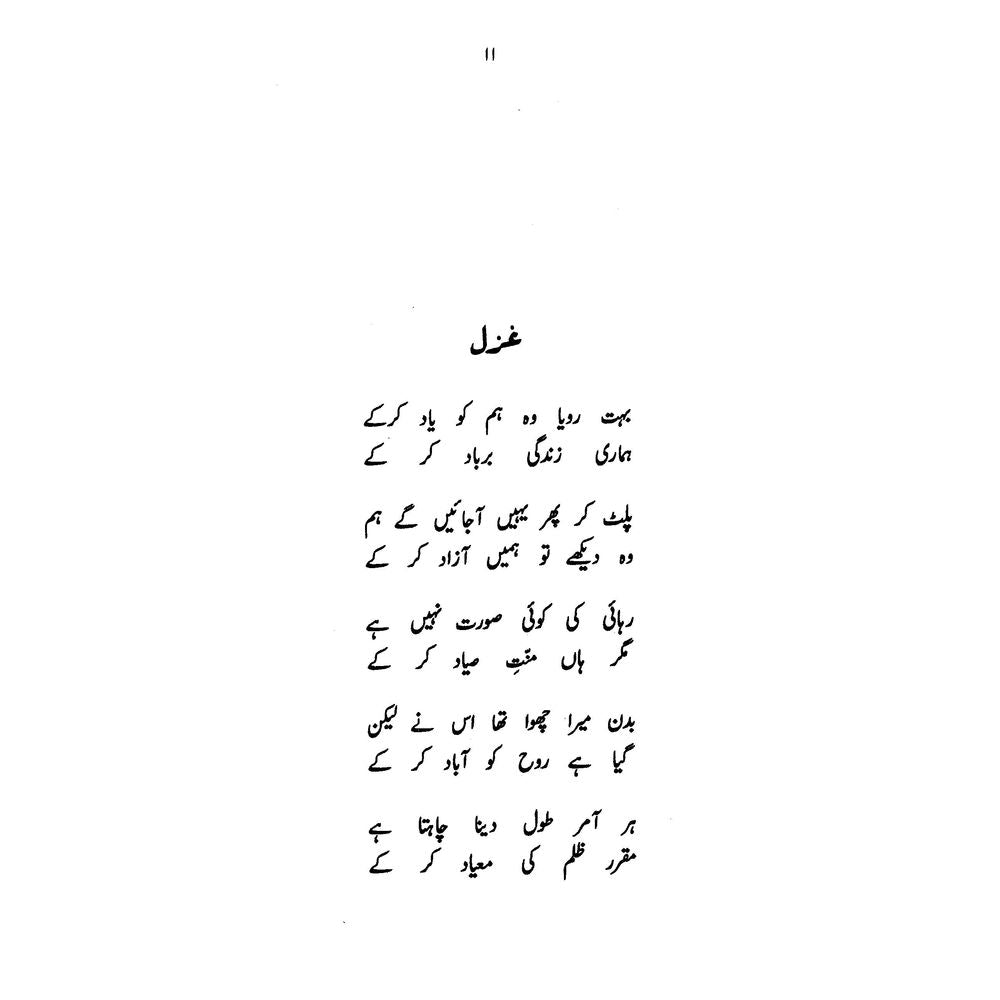 ۱۱
غزل
بہت رویا وہ ہم کو یاد کرکے
ہماری زندگی برباد کر کے
پلٹ کر پھر یہیں آجائیں گے ہم
وہ دیکھے تو ہمیں آزاد کر کے
رہائی کی کوئی صورت نہیں ہے
مگر ہاں منّتِ صیاد کر کے
بدن میرا چھوا تھا اس نے لیکن
گیا ہے روح کو آباد کر کے
ہر آمر طول دینا چاہتا ہے
مقرر ظلم کی معیاد کر کے